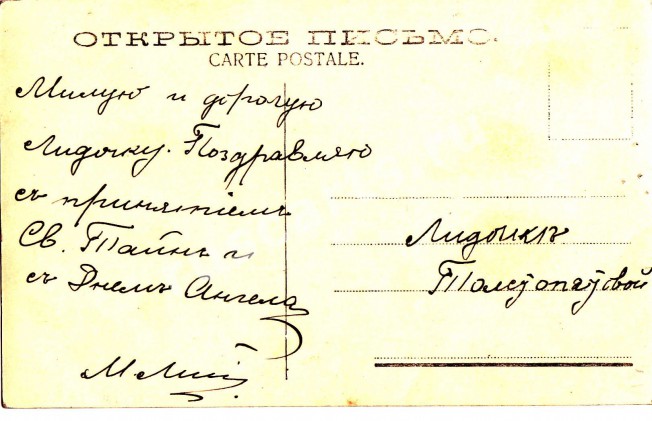 ОТКРЫТОЕ ПИСЬМО.
CARTE POSTALE.
Милую и дорогую
Лидочку. Поздравляю
съ принятіемъ
Св. Таинъ и
съ Днемъ Ангела
Лидочкѣ